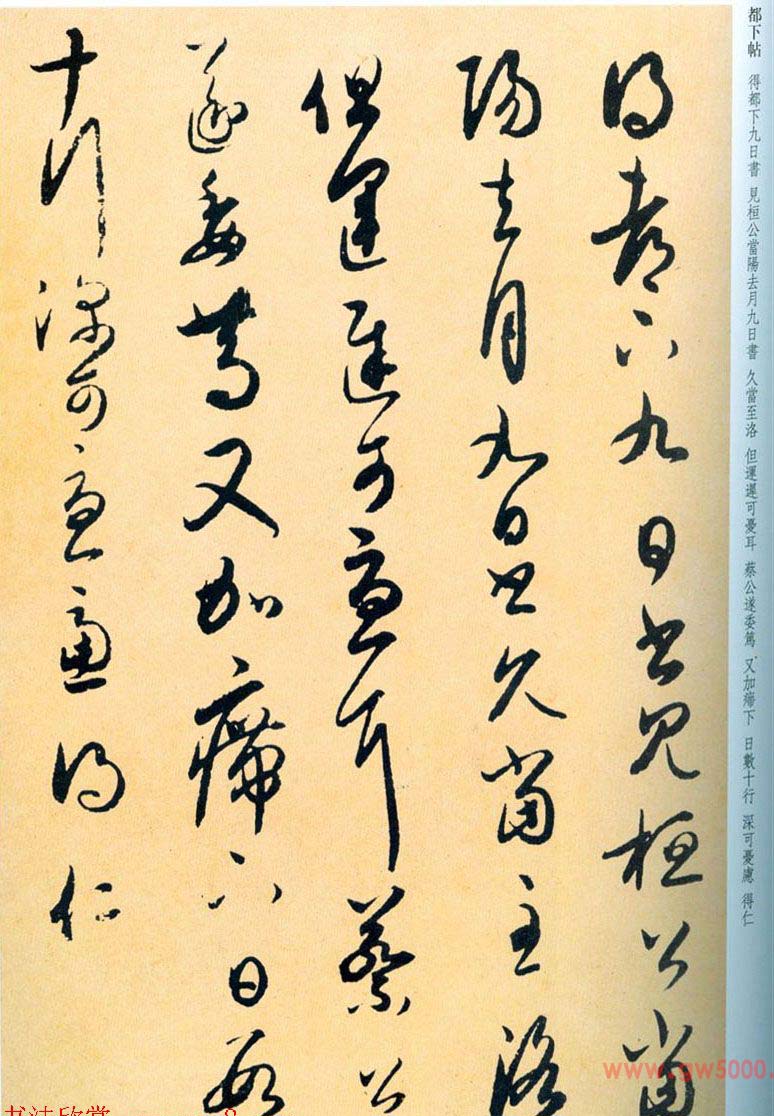 都下帖 得都下九日書 見桓公當陽去月九日書 久當至洛 但運遲可憂耳 蔡公遂委篤 又加㿃下 日數十行 深可憂慮 得仁
得都下九日書見桓公當
陽去月九日書久當至洛
但運遲可憂耳蔡公
遂委篤又加㿃下日數
十行深可憂慮得仁
www.gw5000.
书法欣赏 8